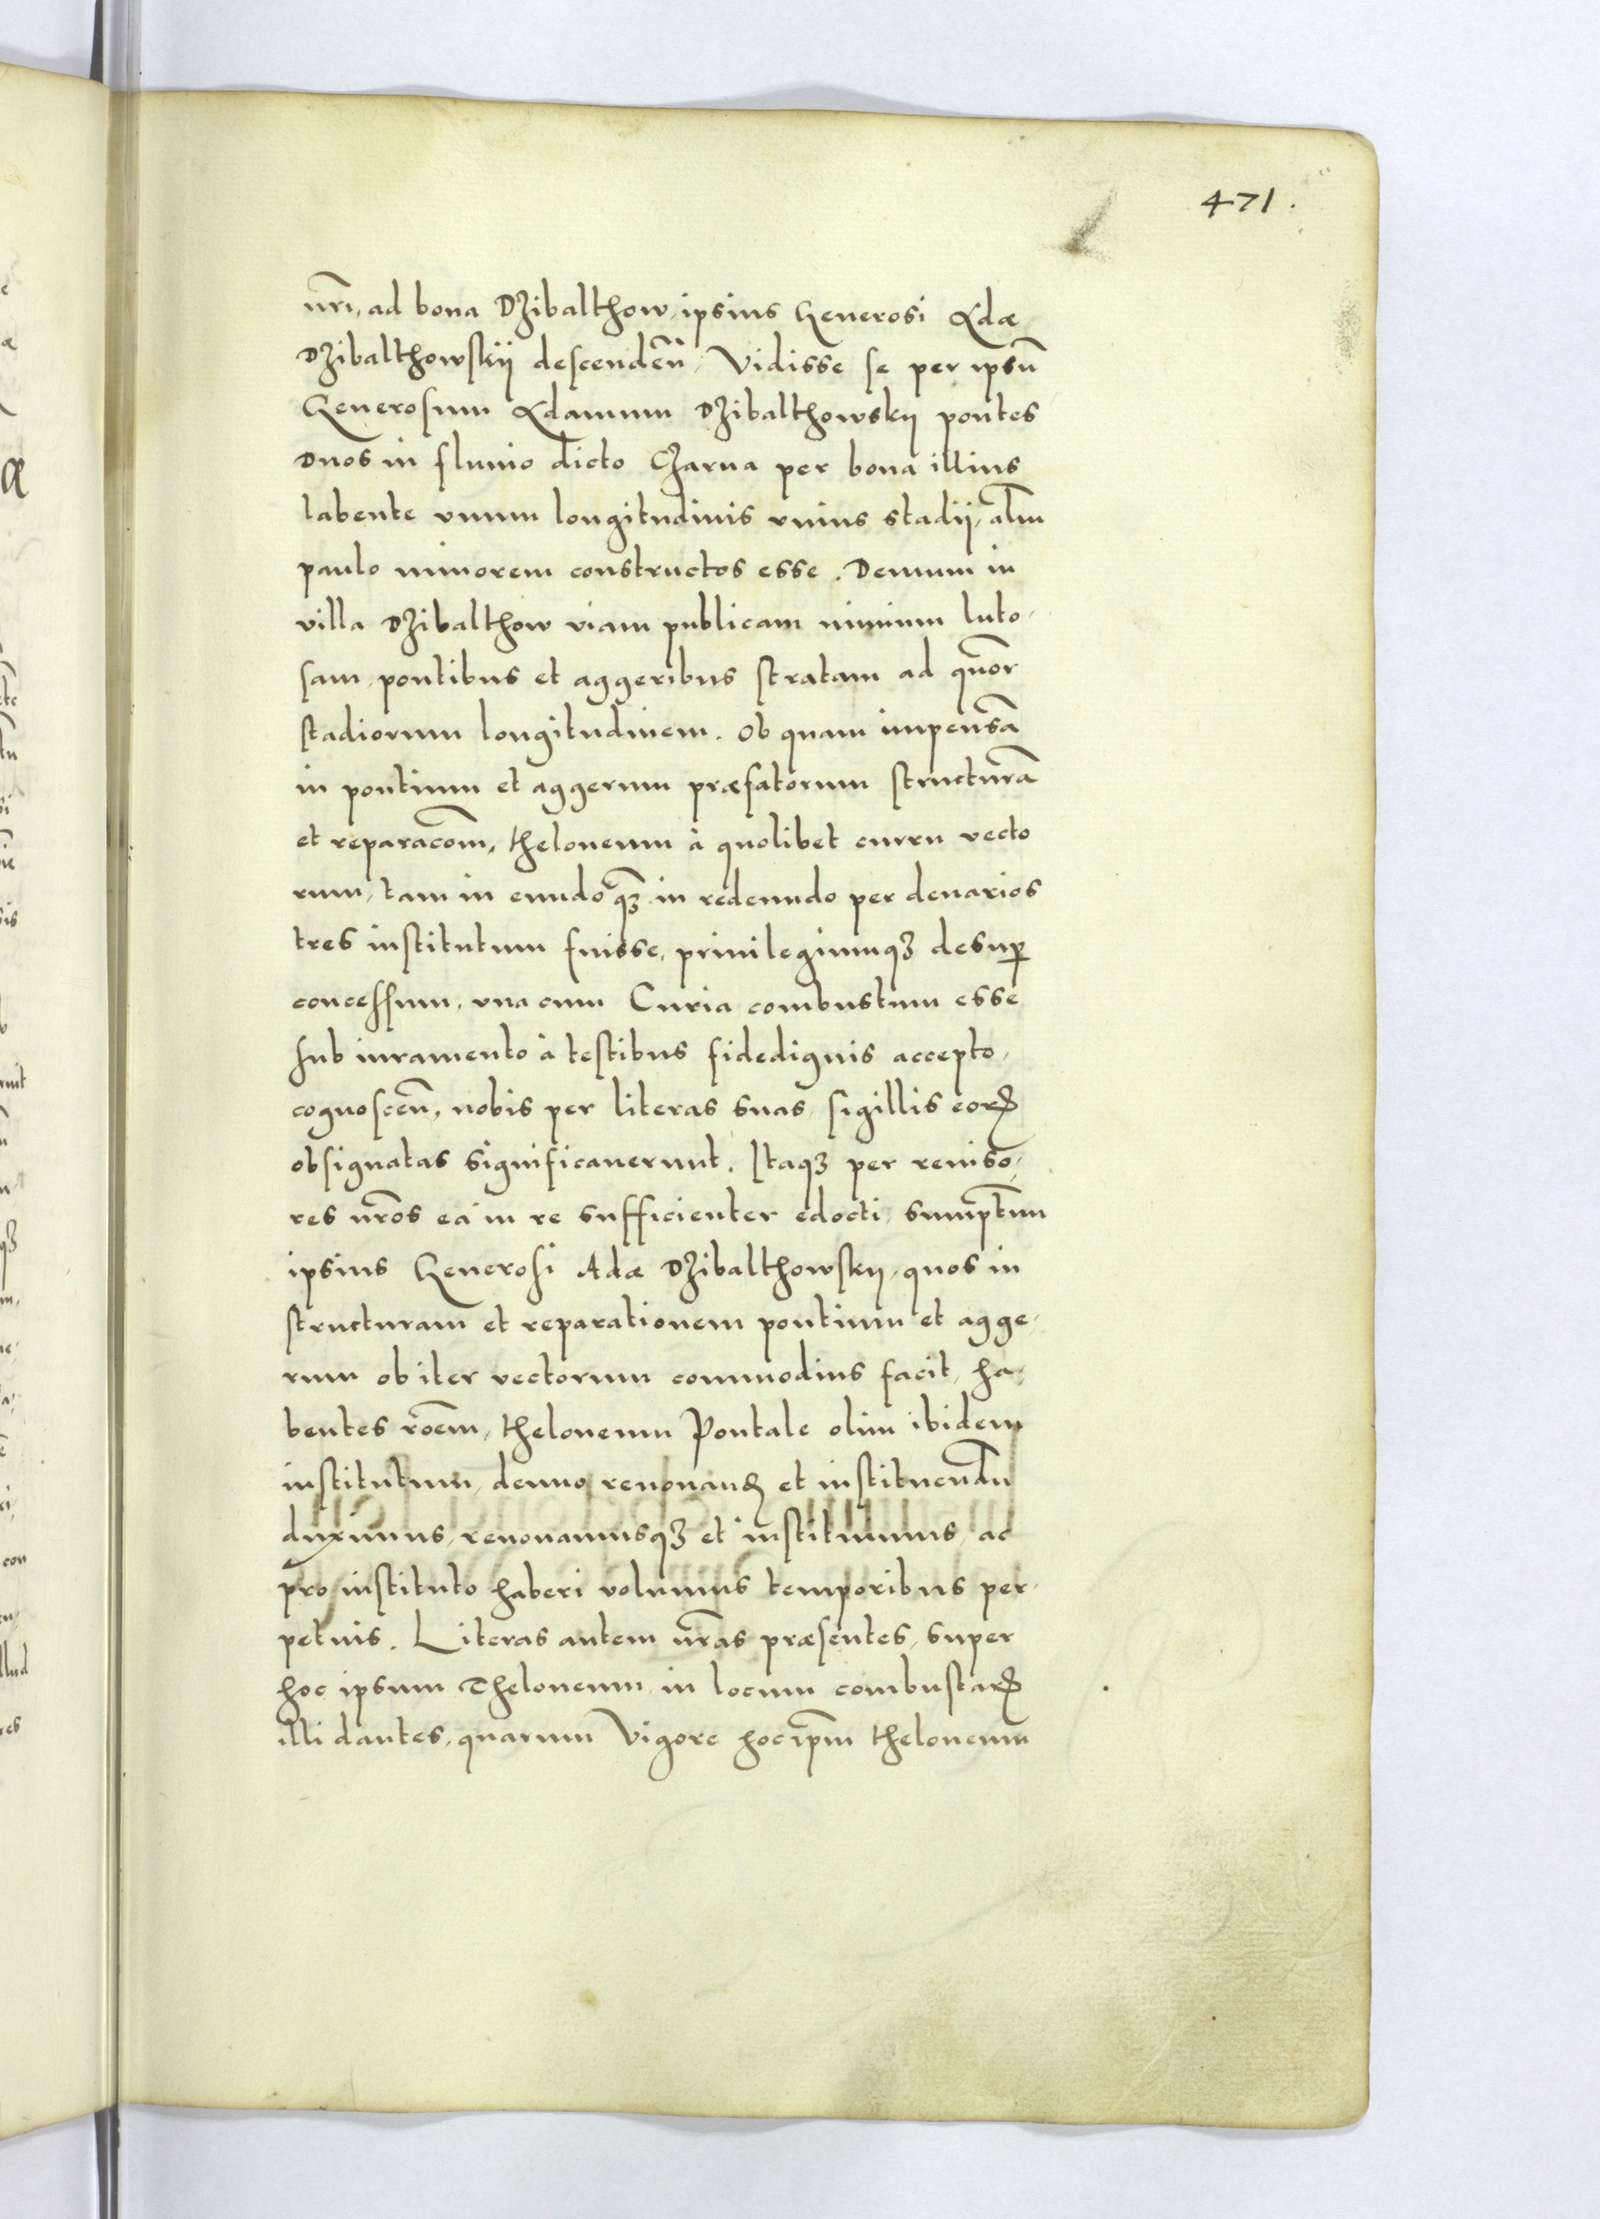 471.
nr̃i, ad bona Dzibalthow, ipsius Generosi Adæ
Dzibalthowskij descendeñ, Vidisse se per ipsũ
Generosum Adamum Dzibalthowsky pontes
Duos in fluuio dicto Czarna per bona illius
labente vnum longitudinis vnius stadij, alm̃
paulo minorem constructos esse. Demum in
villa Dzibalthow viam publicam nimium luto-
sam, pontibus et aggeribus stratam ad quõr
stadiorum longitudinem. Ob quam impensã
in pontium et aggerum præfatorum structurã
et reparacõm, theloneum à quolibet curru vecto
rum, tam in eundo qȝ in redeundo per denarios
tres institutum fuisse, priuilegiumqȝ desup
concessum, vna cum Curia combustum esse
sub iuramento à testibus fidedignis accepto,
cognosceñ, nobis per literas suas sigillis eorꝝ
obsignatas significauerunt. Itaqȝ per reuiso-
res nr̃os ea in re sufficienter edocti, sumptum
ipsius Generosi Adæ Dzibalthowsky, quos in
structuram et reparationem pontium et agge-
rum ob iter vectorum commodius facit, ha-
bentes rõem, theloneum Pontale olim ibidem
institutum, denuo renouanꝺ et instituendũ
duximus, renouamusqȝ et instituimus, ac
pro instituto haberi volumus temporibus per-
petuis. Literas autem nr̃as præsentes, super
hoc ipsum Theloneum in locum combustarꝝ
illi dantes, quarum Vigore hoc ipm̃ theloneum